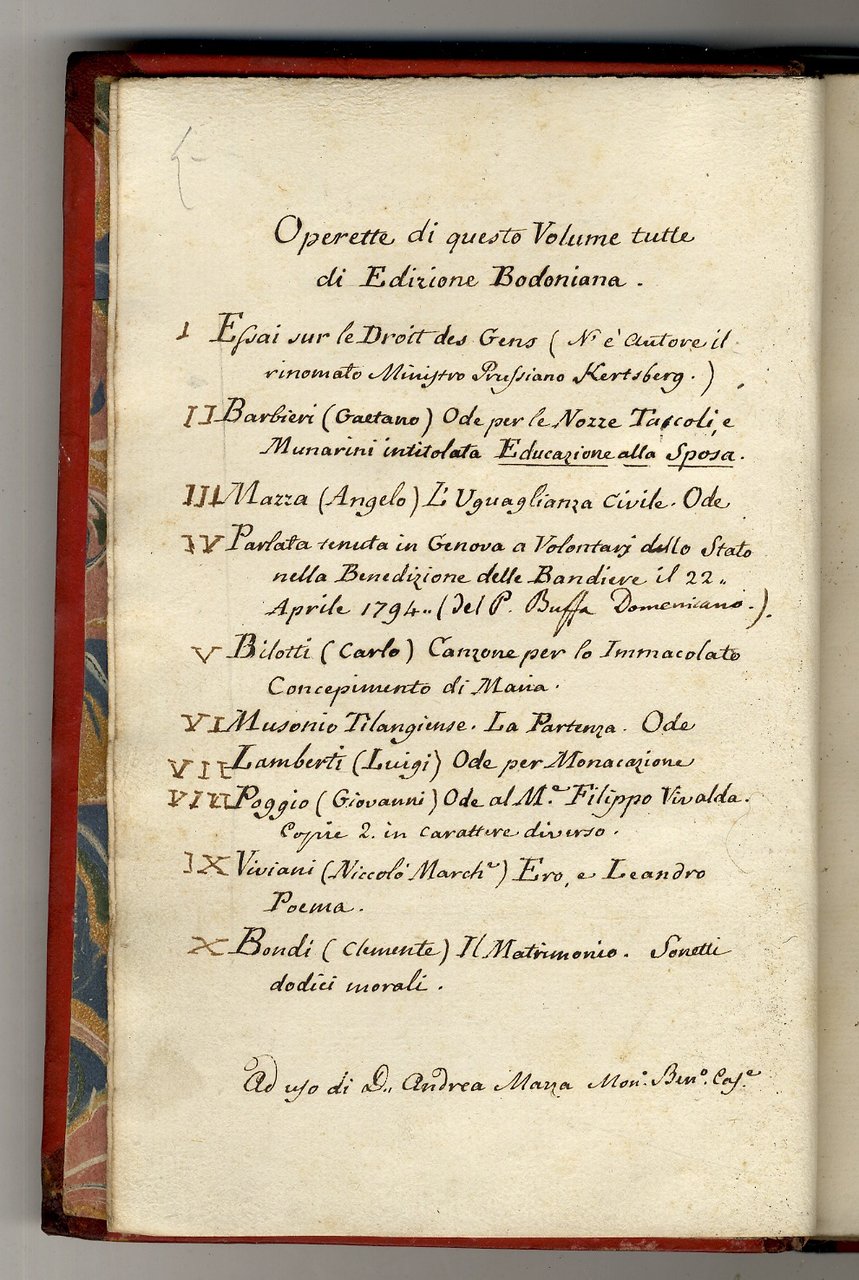 Operette di questo Volume tutte
di Edizione Bodoniana.
I Essai sur le Droit des Gens (N' è autore il
rinomato Ministro Prussiano Kertsberg.)
II Barbieri (Gaetano) Ode per le Nozze Tascoli, e
Munarini intitolata Educazione alla Sposa.
III Mazza (Angelo) L'Uguaglianza Civile. Ode
IV Parlata tenuta in Genova a Volontarj dello Stato
nella Benedizione delle Bandiere il 22,,
Aprile 1794,, (del P. Buffa Domenicano.).
V Bilotti (Carlo) Canzone per lo Immacolato
Concepimento di Maria.
VI Musonio Tilangiense. La Partenza. Ode
VII Lamberti (Luigi) Ode per Monacazione
VIII Poggio (Giovanni) Ode al M.e Filippo Vivalda.
Copie 2. in carattere diverso.
IX Viviani (Niccolò March.e) Ero, e Leandro
Poema.
X Bondi (Clemente) Il Matrimonio. Sonetti
dodici morali.
Ad uso di D,, Andrea Mazza Mon.o Ben.o Cas.e